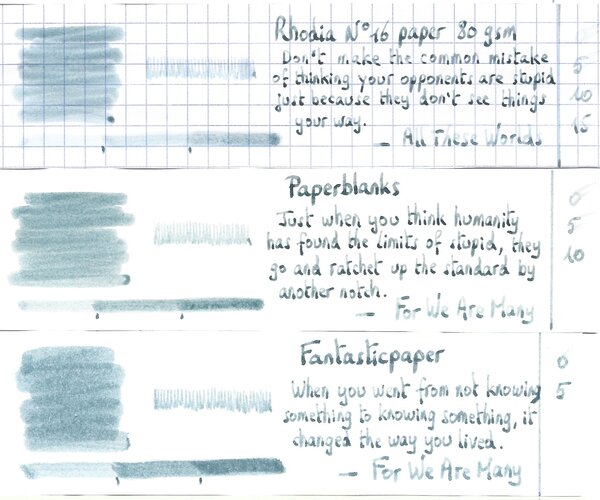 Rhodia N°16 paper 80 gsm
Don't make the common mistake
of thinking your opponents are stupid
just because they don't see things
your way.
— All These Worlds
5
10
15
Paperblanks
Just when you think humanity
has found the limits of stupid, they
go and ratchet up the standard by
another notch.
— For We Are Many
0
5
10
Fantasticpaper
When you went from not knowing
something to knowing something, it
changed the way you lived.
— For We Are Many
0
5